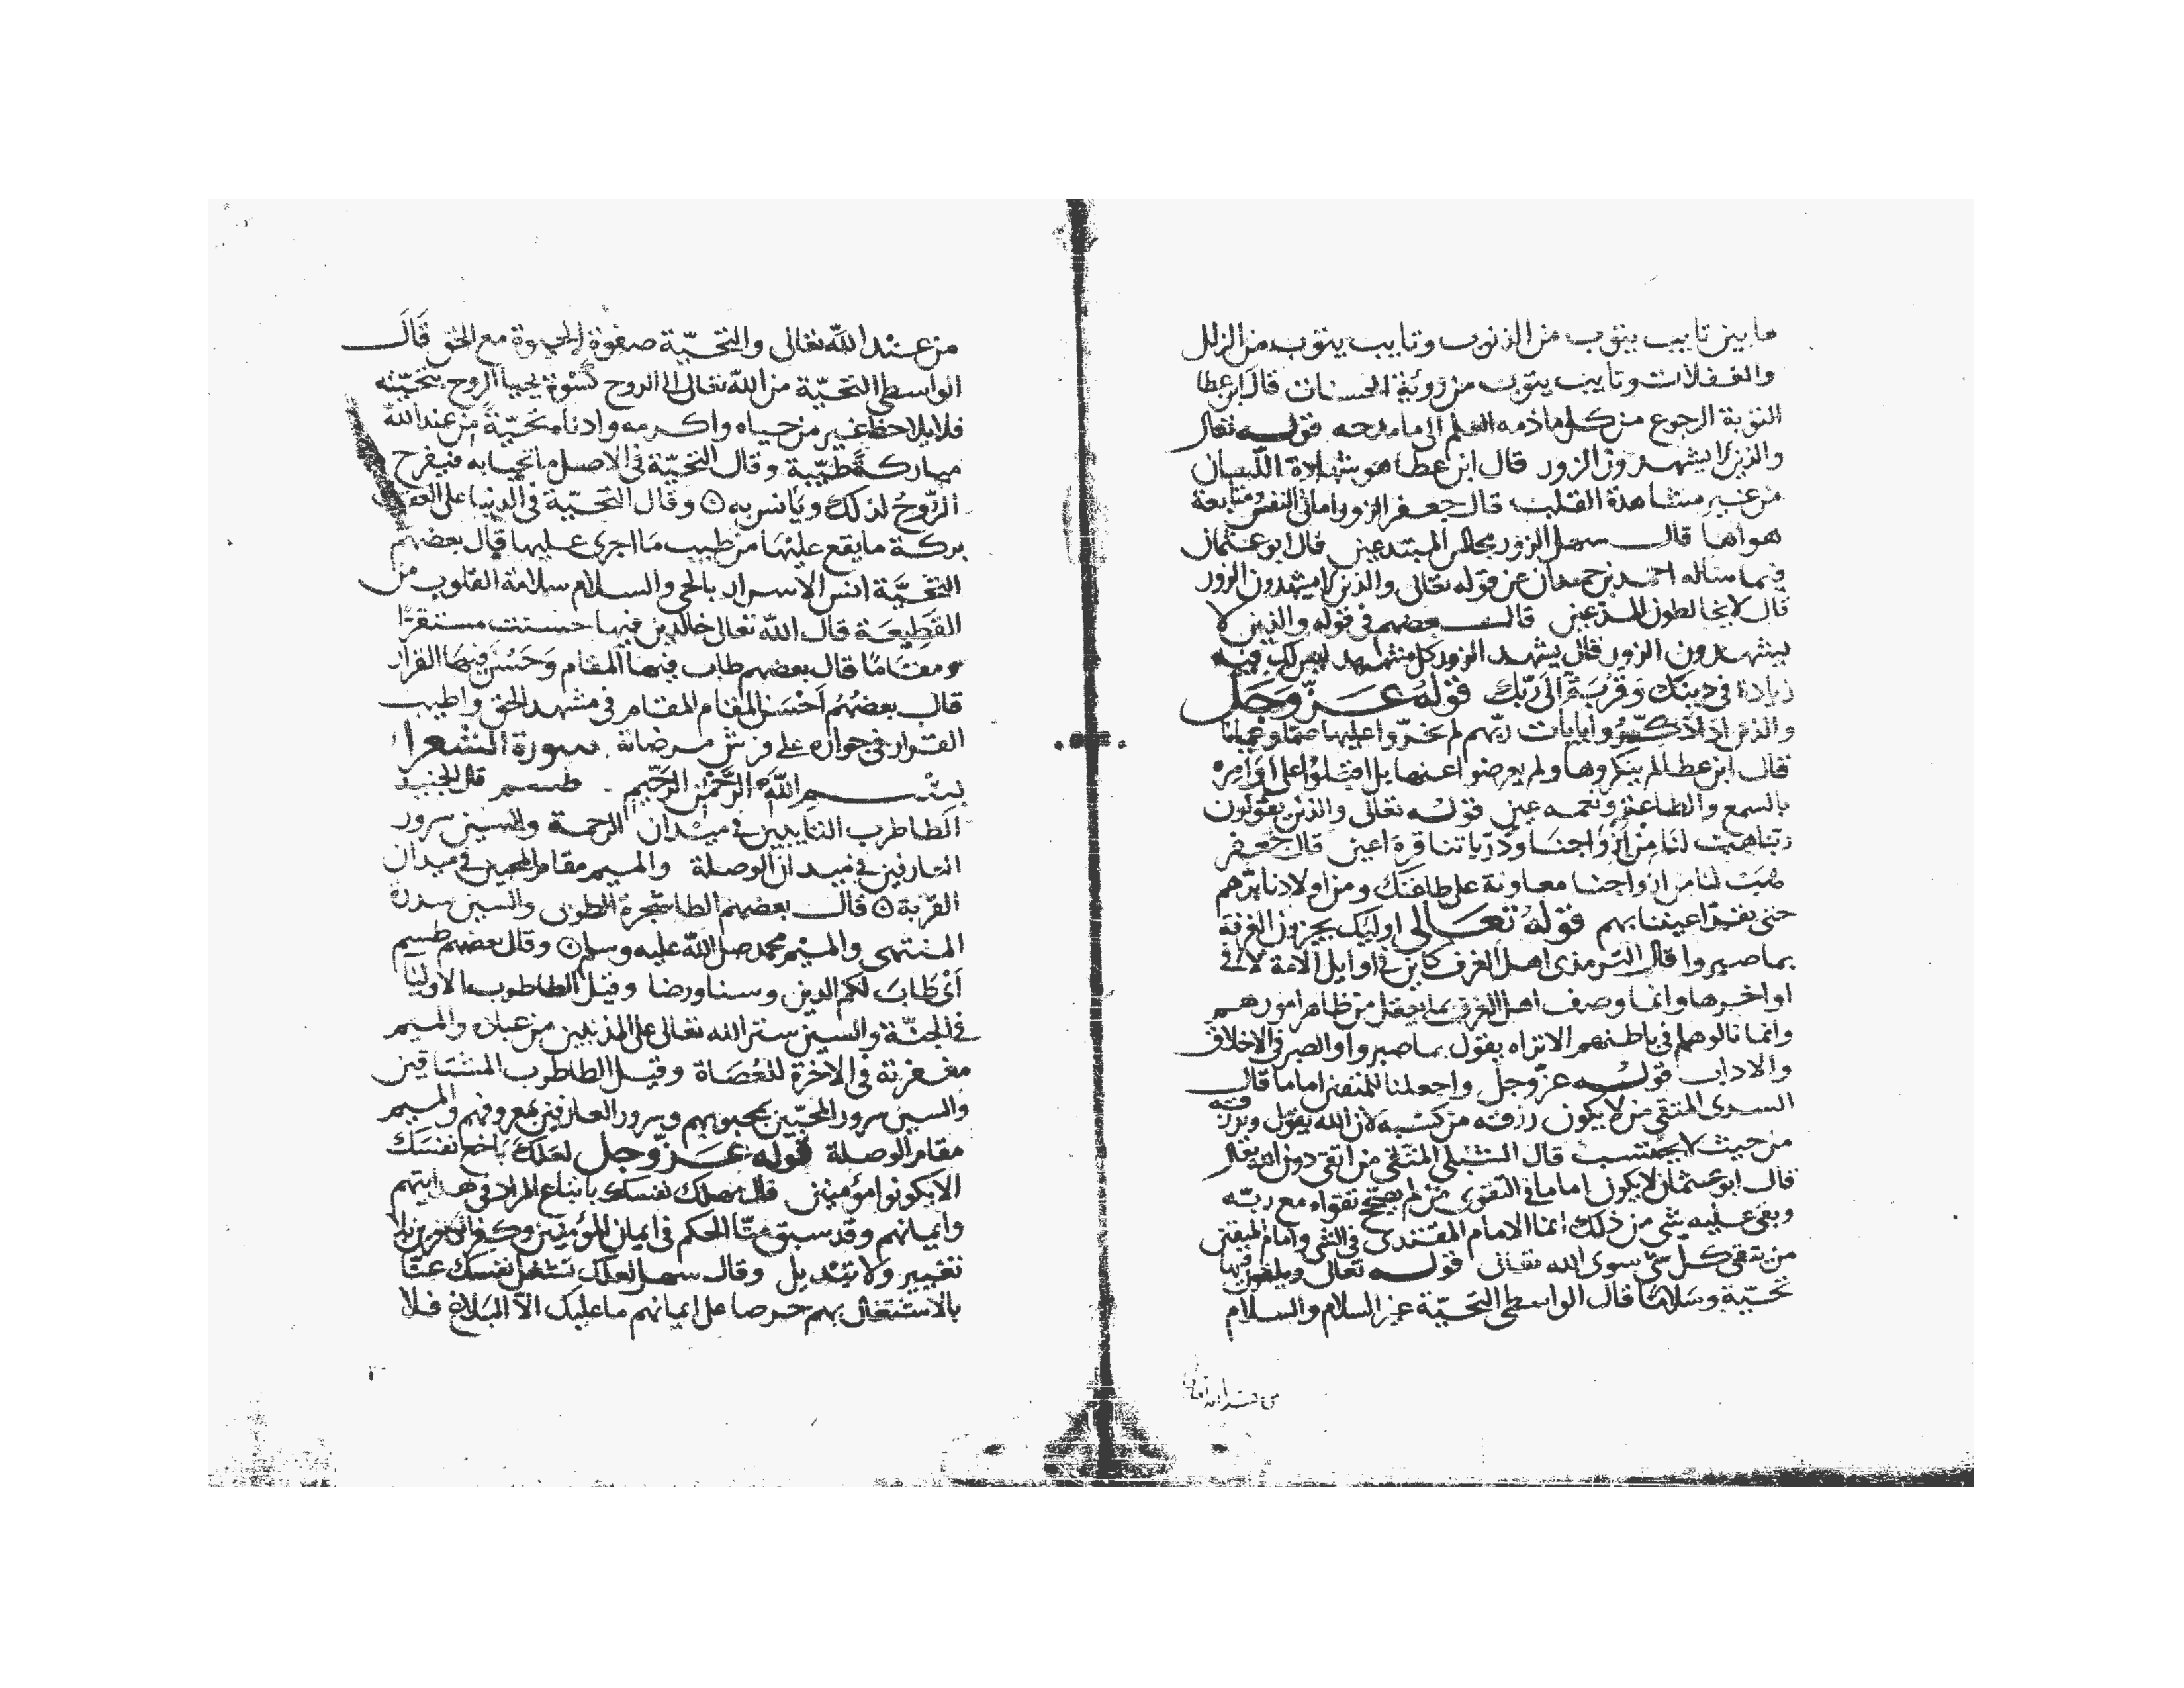 ما بين تايب يتوب من الذنوب وتايب يتوب من الزلل
والغفلات وتايب يتوب من رؤية الحسنات قال ابن عطا
التوبة الرجوع من كل ما ذمه العلم الى ما مدحه قوله تعالى
والذين لا يشهدون الزور قال ابن عطا هو شهادة اللسان
من غير مشاهدة القلب قال جعفر الزور امانى النفس ومتابعة
هواها قال سهل الزور مجالس المبتدعين قال ابو عثمان
فيما ساله احمد بن حمدان عن قوله تعالى والذين لا يشهدون الزور
قال لا يخالطون المدعين قال بعضهم فى قوله والذين لا
يشهدون الزور قال يشهد الزور كل مشهد ليس لك فيه
زيادة فى دينك وقربة الى ربك قوله عز وجل
والذين اذا ذكروا بايات ربهم لم يخروا عليها صما وعميانا
قال ابن عطا لم ينكروها ولم يعرضوا عنها بل اقبلوا على اوامره
بالسمع والطاعة ونعمه عين قوله تعالى والذين يقولون
ربنا هب لنا من ازواجنا وذرياتنا قرة اعين قال جعفر
هب لنا من ازواجنا معاونة على طاعتك ومن اولادنا برهم
حتى يقر اعيننا بهم قوله تعالى اوليك يجزون الغرفة
بما صبروا قال الترمذى اهل الغرف كاين فى اوايل الامة لا فى
اواخرها وانما وصف اهل الغرف بما يعقل من ظاهر امورهم
وانما نالوها بما فى باطنهم الا تراه يقول بما صبروا والصبر فى الاخلاق
والاداب قوله عز وجل واجعلنا للمتقين اماما قال
السرى المتقى من لا يكون رزقه من كسبه لان الله يقول ويرزقه
من حيث لا يحتسب قال الشبلى المتقى من اتقى دون الله تعالى
قال ابو عثمان لا يكون اماما فى التقوى من لم يصحح تقواه مع ربه
وبقى عليه شى من ذلك انما الامام المقتدى فى الشى وامام المتقين
من يتقى كل شى سوى الله تعالى قوله تعالى ويلقون فيها
تحية وسلاما قال الواسطى التحية عن السلام والسلام
من عند الله تعالى
من عند الله تعالى والتحية صفوة الحيوة مع الحق قال
الواسطى التحية من الله تعالى الى الروح كسوة يحيا الروح بتحيته
فلا يلاحظ غير من حياه واكرمه وادناه تحية من عند الله
مباركة طيبة وقال التحية فى الاصل ما تحيا به فيفرح
الروح لذلك ويانس به وقال التحية فى الدنيا على
بركة ما يقع عليها من طيب ما اجرى عليها قال بعضهم
التحية انس الاسرار بالحى والسلام سلامة القلوب من
القطيعة قال الله تعالى خالدين فيها حسنت مستقرا
ومقاما قال بعضهم طاب فيها المقام وحسن فيها القرار
قال بعضهم احسن المقام المقام فى مشهد الحق واطيب
القرار فى جواره على فرش مرضاته سورة الشعرا
بسم الله الرحمن الرحيم طسم قال الجنيد
الطا طرب التايبين فى ميدان الرحمة والسين سرور
العارفين فى ميدان الوصلة والميم مقام المحبين فى ميدان
القربة قال بعضهم الطا شجرة الطوبى والسين سدرة
المنتهى والميم محمد صلى الله عليه وسلم وقال بعضهم طسم
اى طاب لكم الدين وسنا ورضا وقيل الطا طوبى الاوليا
فى الجنة والسين ستر الله تعالى على المذنبين من عباده والميم
مغفرته فى الاخرة للعصاة وقيل الطا طرب المشتاقين
والسين سرور المحبين بمحبوبهم وسرور العارفين بمعروفهم والميم
مقام الوصلة قوله عز وجل لعلك باخع نفسك
الا يكونوا مؤمنين قال مهلك نفسك باتباع المراد فى هدايتهم
وايمانهم وقد سبق منا الحكم فى ايمان المؤمنين وكفر الكافرين لا
تغيير ولا تبديل وقال سهل لعلك تشغل نفسك عنا
بالاشتغال بهم حرصا على ايمانهم ما عليك الا البلاغ فلا